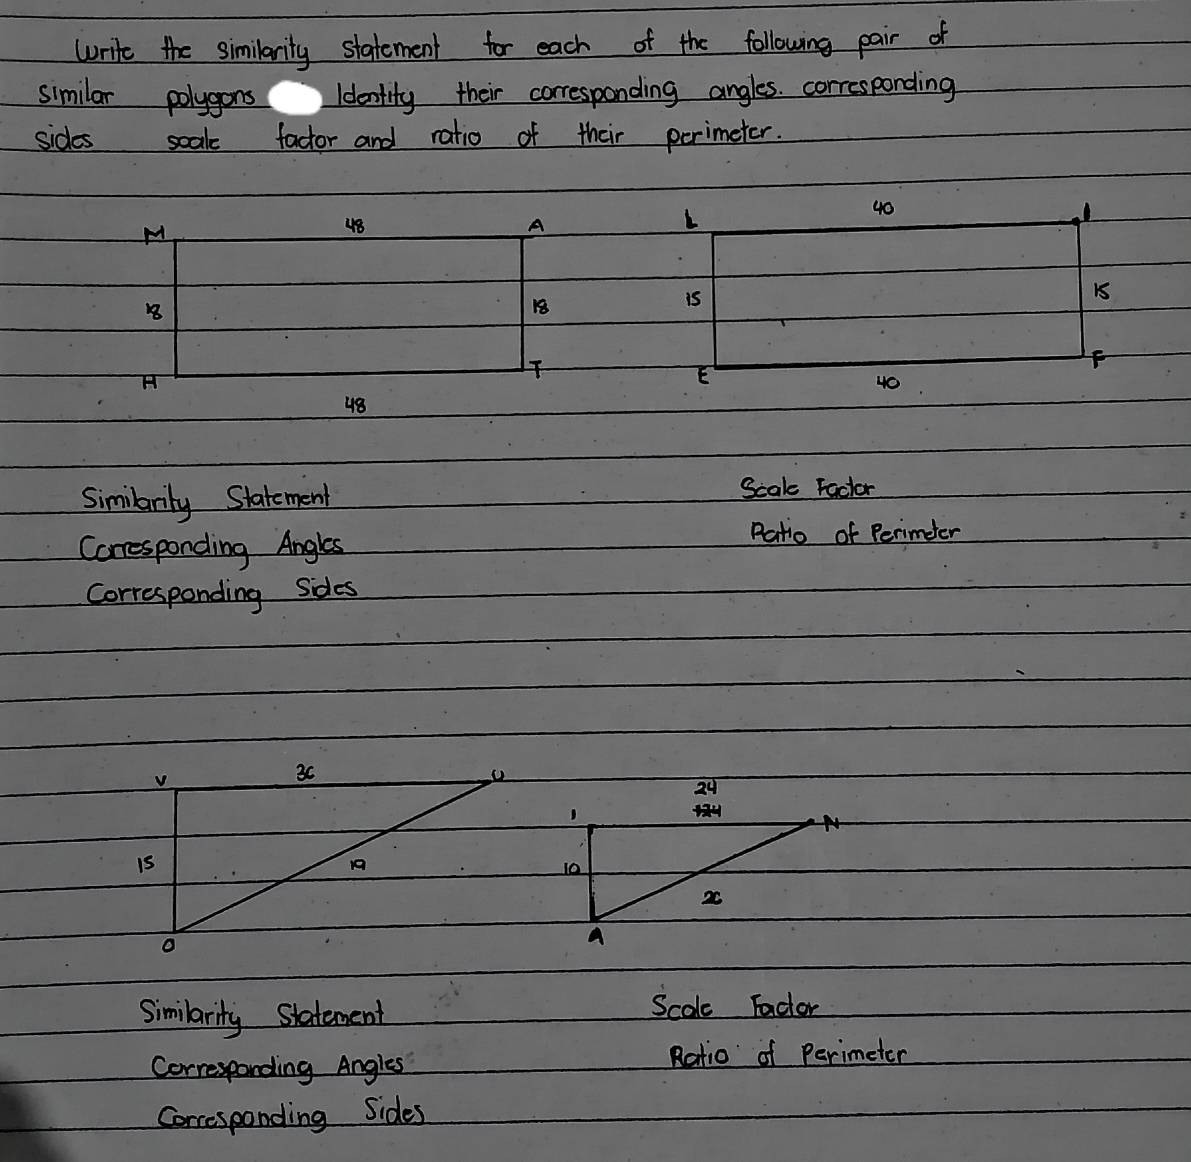 Write the similarity statement for each of the following pair of
similar polygons Identity their corresponding angles. corresponding
sides scale factor and ratio of their perimeter.
M 48 A L 40 I
18 18 15 15
H T E F
48 40
Similarity Statement Scale Factor
Corresponding Angles Ratio of Perimeter
Corresponding Sides
V 36 U 24
I N
15 19 10 26
O A
Similarity Statement Scale Factor
Corresponding Angles Ratio of Perimeter
Corresponding Sides